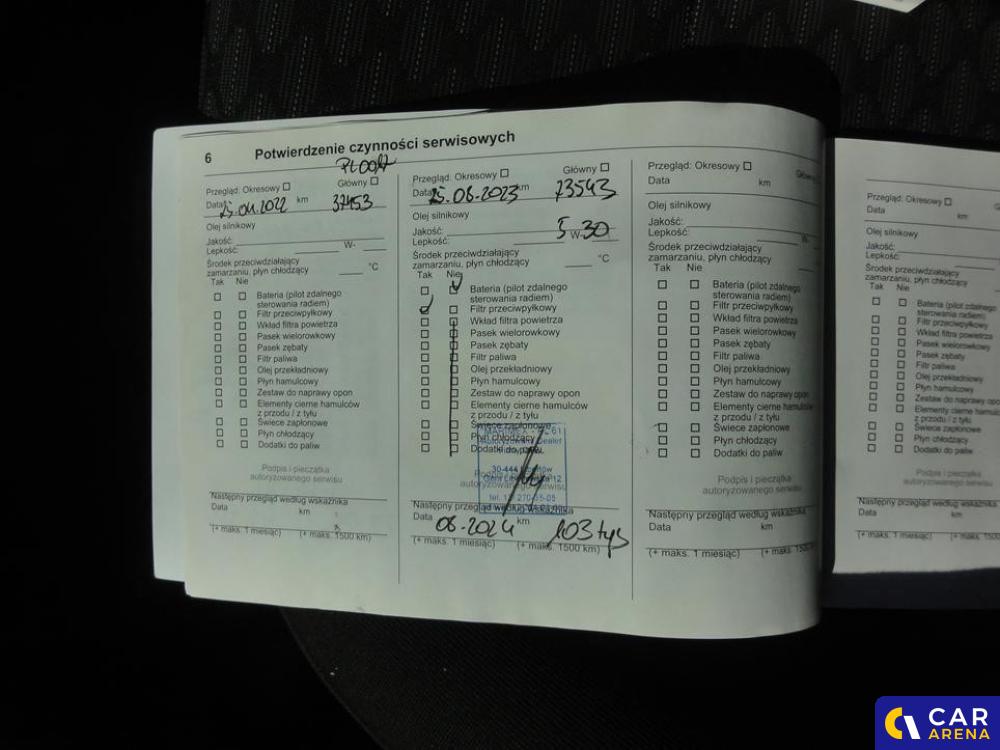 6 Potwierdzenie czynności serwisowych
Przegląd: Okresowy Główny
Data 25.04.2022 km 37453
Olej silnikowy
Jakość:
Lepkość: W-
Środek przeciwdziałający
zamarzaniu, płyn chłodzący °C
Tak Nie
Bateria (pilot zdalnego
sterowania radiem)
Filtr przeciwpyłkowy
Wkład filtra powietrza
Pasek wielorowkowy
Pasek zębaty
Filtr paliwa
Olej przekładniowy
Płyn hamulcowy
Zestaw do naprawy opon
Elementy cierne hamulców
z przodu / z tyłu
Świece zapłonowe
Płyn chłodzący
Dodatki do paliw
Podpis i pieczątka
autoryzowanego serwisu
Następny przegląd według wskaźnika
Data km
(+ maks. 1 miesiąc) (+ maks. 1500 km)
Przegląd: Okresowy Główny
Data 25.08.2023 km 73543
Olej silnikowy
Jakość:
Lepkość: 5 W- 30
Środek przeciwdziałający
zamarzaniu, płyn chłodzący °C
Tak Nie
Bateria (pilot zdalnego
sterowania radiem)
Filtr przeciwpyłkowy
Wkład filtra powietrza
Pasek wielorowkowy
Pasek zębaty
Filtr paliwa
Olej przekładniowy
Płyn hamulcowy
Zestaw do naprawy opon
Elementy cierne hamulców
z przodu / z tyłu
Świece zapłonowe
Płyn chłodzący
Dodatki do paliw
30-444
autoryzowanego serwisu
Następny przegląd według wskaźnika
Data 08.2024 km 103 tys
(+ maks. 1 miesiąc) (+ maks. 1500 km)
Przegląd: Okresowy
Data km
Olej silnikowy
Jakość:
Lepkość:
Środek przeciwdziałający
zamarzaniu, płyn chłodzący
Tak Nie
Bateria (pilot zdalnego
sterowania radiem)
Filtr przeciwpyłkowy
Wkład filtra powietrza
Pasek wielorowkowy
Pasek zębaty
Filtr paliwa
Olej przekładniowy
Płyn hamulcowy
Zestaw do naprawy opon
Elementy cierne hamulców
z przodu / z tyłu
Świece zapłonowe
Płyn chłodzący
Dodatki do paliw
Podpis i pieczątka
autoryzowanego serwisu
Następny przegląd według wskaźnika
Data km
(+ maks. 1 miesiąc) (+ maks. 1500 km)
Przegląd: Okresowy
Data km
Olej silnikowy
Jakość:
Lepkość:
Środek przeciwdziałający
zamarzaniu, płyn chłodzący
Tak Nie
Bateria (pilot zdalnego
sterowania radiem)
Filtr przeciwpyłkowy
Wkład filtra powietrza
Pasek wielorowkowy
Pasek zębaty
Filtr paliwa
Olej przekładniowy
Płyn hamulcowy
Zestaw do naprawy opon
Elementy cierne hamulców
z przodu / z tyłu
Świece zapłonowe
Płyn chłodzący
Dodatki do paliw
Podpis i pieczątka
autoryzowanego serwisu
Następny przegląd według wskaźnika
Data km
(+ maks. 1 miesiąc) (+ maks. 1500
CAR
ARENA